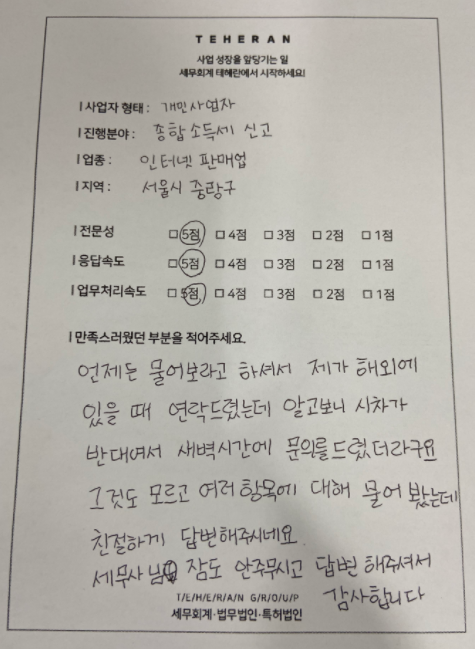 TEHERAN
사업 성장을 앞당기는 일
세무회계 테헤란에서 시작하세요!
사업자 형태 : 개인사업자
진행분야 : 종합소득세 신고
업종 : 인터넷 판매업
지역 : 서울시 중랑구
전문성 □ 5점 □ 4점 □ 3점 □ 2점 □ 1점
응답속도 □ 5점 □ 4점 □ 3점 □ 2점 □ 1점
업무처리속도 □ 5점 □ 4점 □ 3점 □ 2점 □ 1점
만족스러웠던 부분을 적어주세요.
언제든 물어보라고 하셔서 제가 해외에
있을 때 연락드렸는데 알고보니 시차가
반대여서 새벽시간에 문의를 드렸더라구요
그것도 모르고 여러 항목에 대해 물어 봤는데
친절하게 답변해주시네요.
세무사님 잠도 안주무시고 답변 해주셔서
감사합니다
T/E/H/E/R/A/N G/R/O/U/P
세무회계·법무법인·특허법인